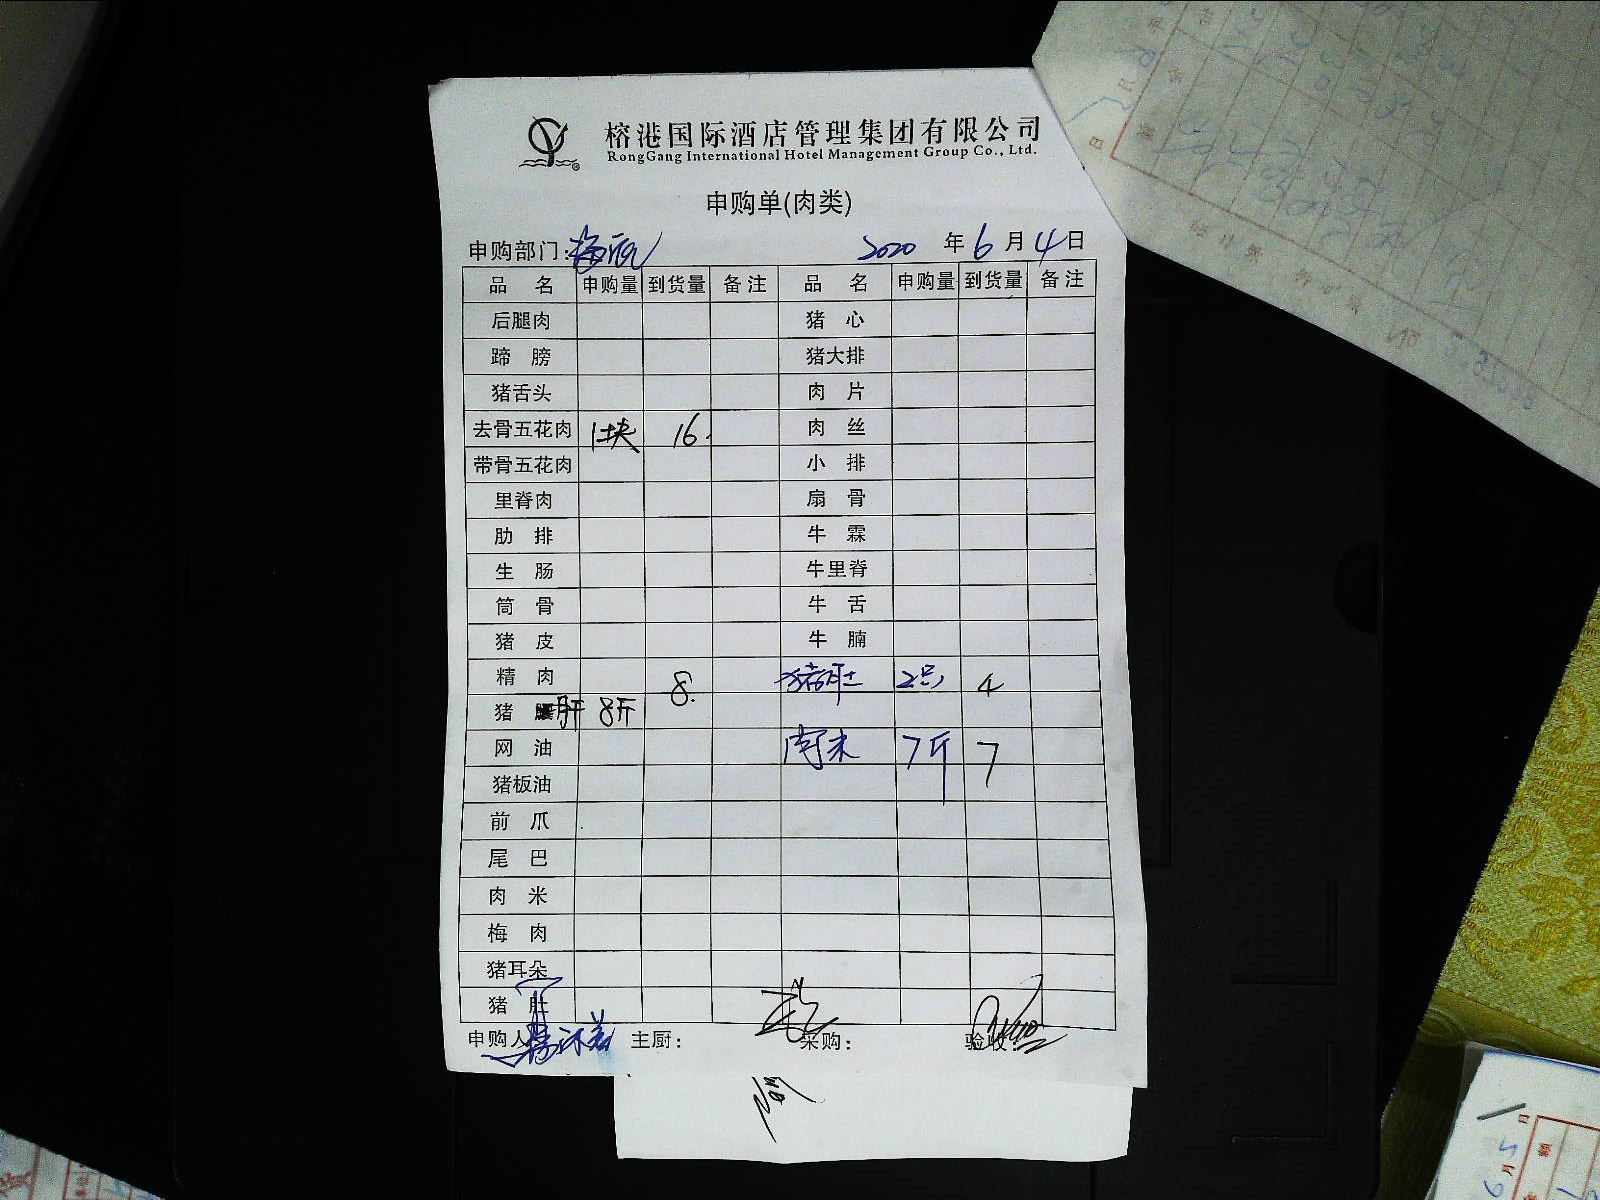 榕港国际酒店管理集团有限公司
RongGang International Hotel Management Group Co., Ltd.
申购单(肉类)
申购部门: 2020 年 6 月 4 日
品 名 申购量 到货量 备注 品 名 申购量 到货量 备注
后腿肉 猪 心
蹄 膀 猪大排
猪舌头 肉 片
去骨五花肉 1块 16. 肉 丝
带骨五花肉 小 排
里脊肉 扇 骨
肋 排 牛 霖
生 肠 牛里脊
筒 骨 牛 舌
猪 皮 牛 腩
精 肉 8. 猪肚 2只 4
猪 肝 8斤
网 油 肉末 7斤 7
猪板油
前 爪
尾 巴
肉 米
梅 肉
猪耳朵
猪 肚
申购人 主厨: 采购: 验收: